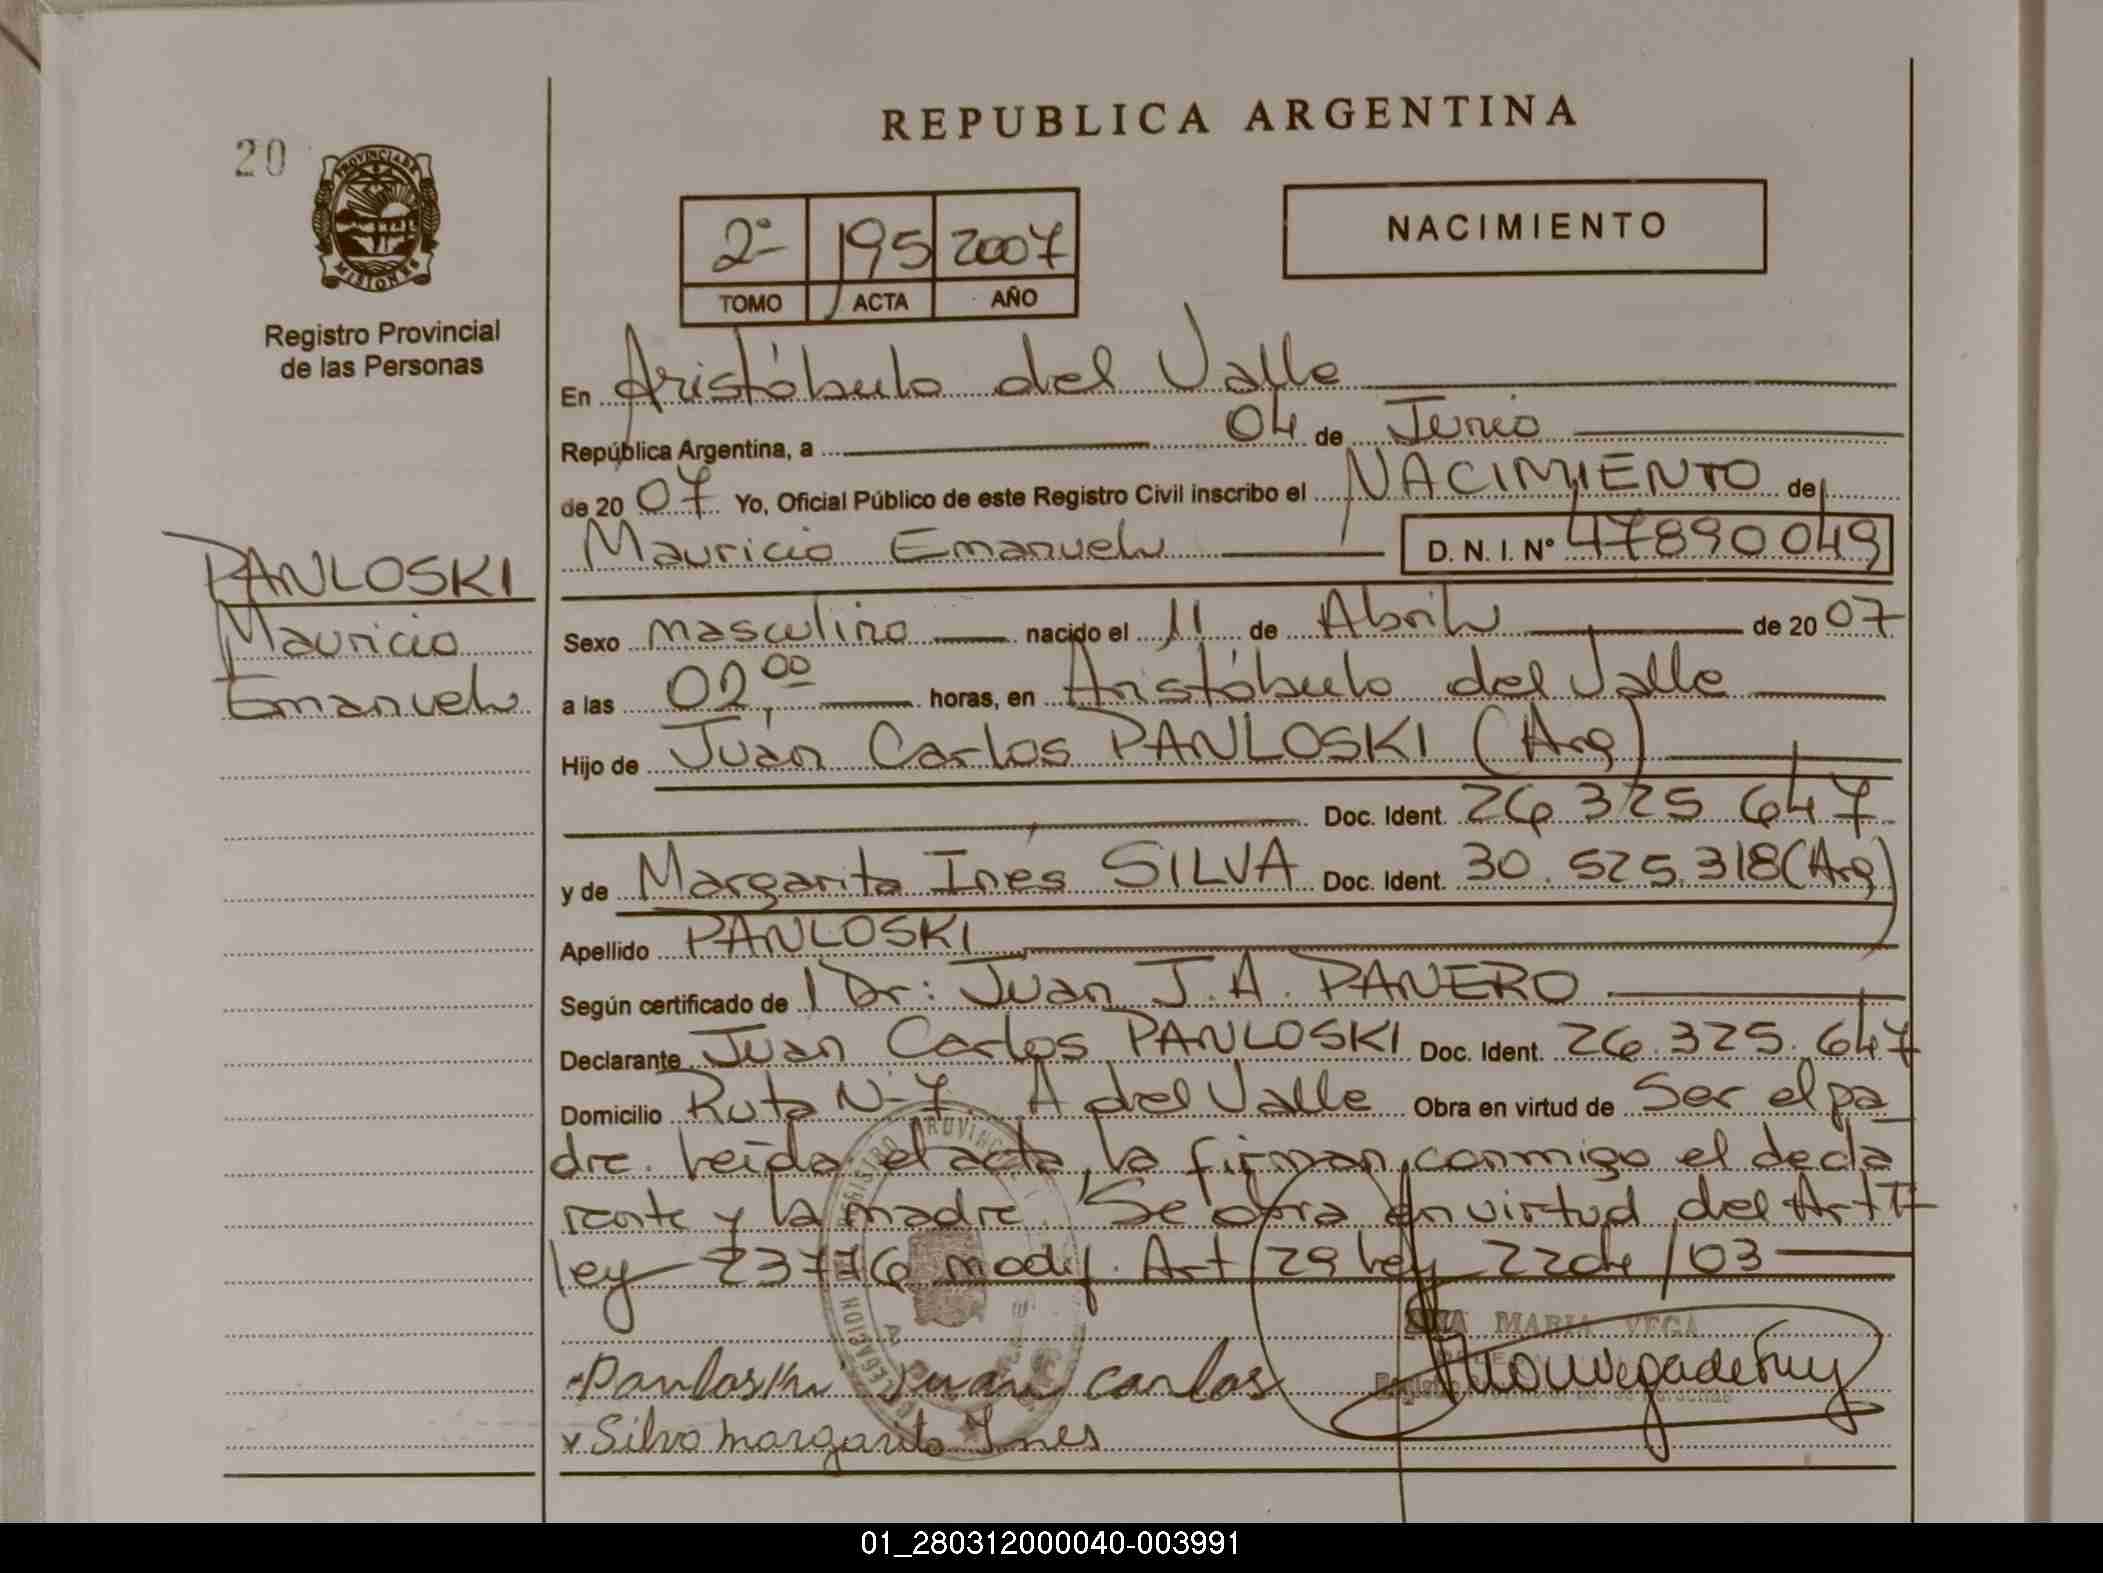 REPUBLICA ARGENTINA
20
PROVINCIA DE
MISIONES
Registro Provincial
de las Personas
NACIMIENTO
2º 195 2007
TOMO ACTA AÑO
En Aristóbulo del Valle
República Argentina, a 04 de Junio
de 20 07 Yo, Oficial Público de este Registro Civil inscribo el NACIMIENTO de
Mauricio Emanuel D. N. I. Nº 47890049
PANLOSKI
Mauricio
Emanuel
Sexo masculino nacido el 11 de Abril de 20 07
a las 02,00 horas, en Aristóbulo del Valle
Hijo de Juan Carlos PANLOSKI (Arg)
Doc. Ident. 26 325 647
y de Margarita Inés SILVA Doc. Ident. 30.525.318 (Arg)
Apellido PANLOSKI
Según certificado de Dr: Juan J. A. PANERO
Declarante Juan Carlos PANLOSKI Doc. Ident. 26.325.647
Domicilio Ruta Nº 7 A del Valle Obra en virtud de Ser el pa
dre. Leída el acta, la firman conmigo el decla
rante y la madre. Se obra en virtud del Art
ley 23776 modif. Art 29 ley 22 de /03
MARIA VEGA
Panloski Juan Carlos
x Silva margarita Ines
01_280312000040-003991